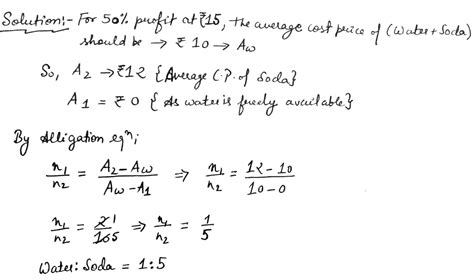 Solution:- For 50% profit at ₹15, the average cost price of (Water + Soda)
should be → ₹ 10 → Aw
So, A2 → ₹12 {Average C.P. of Soda}
A1 = ₹ 0 {As water is freely available}
By Alligation eqn;
n1/n2 = A2 - Aw / Aw - A1 ⇒ n1/n2 = 12 - 10 / 10 - 0
n1/n2 = 2 1 / 10 5 ⇒ n1/n2 = 1/5
Water : Soda = 1:5